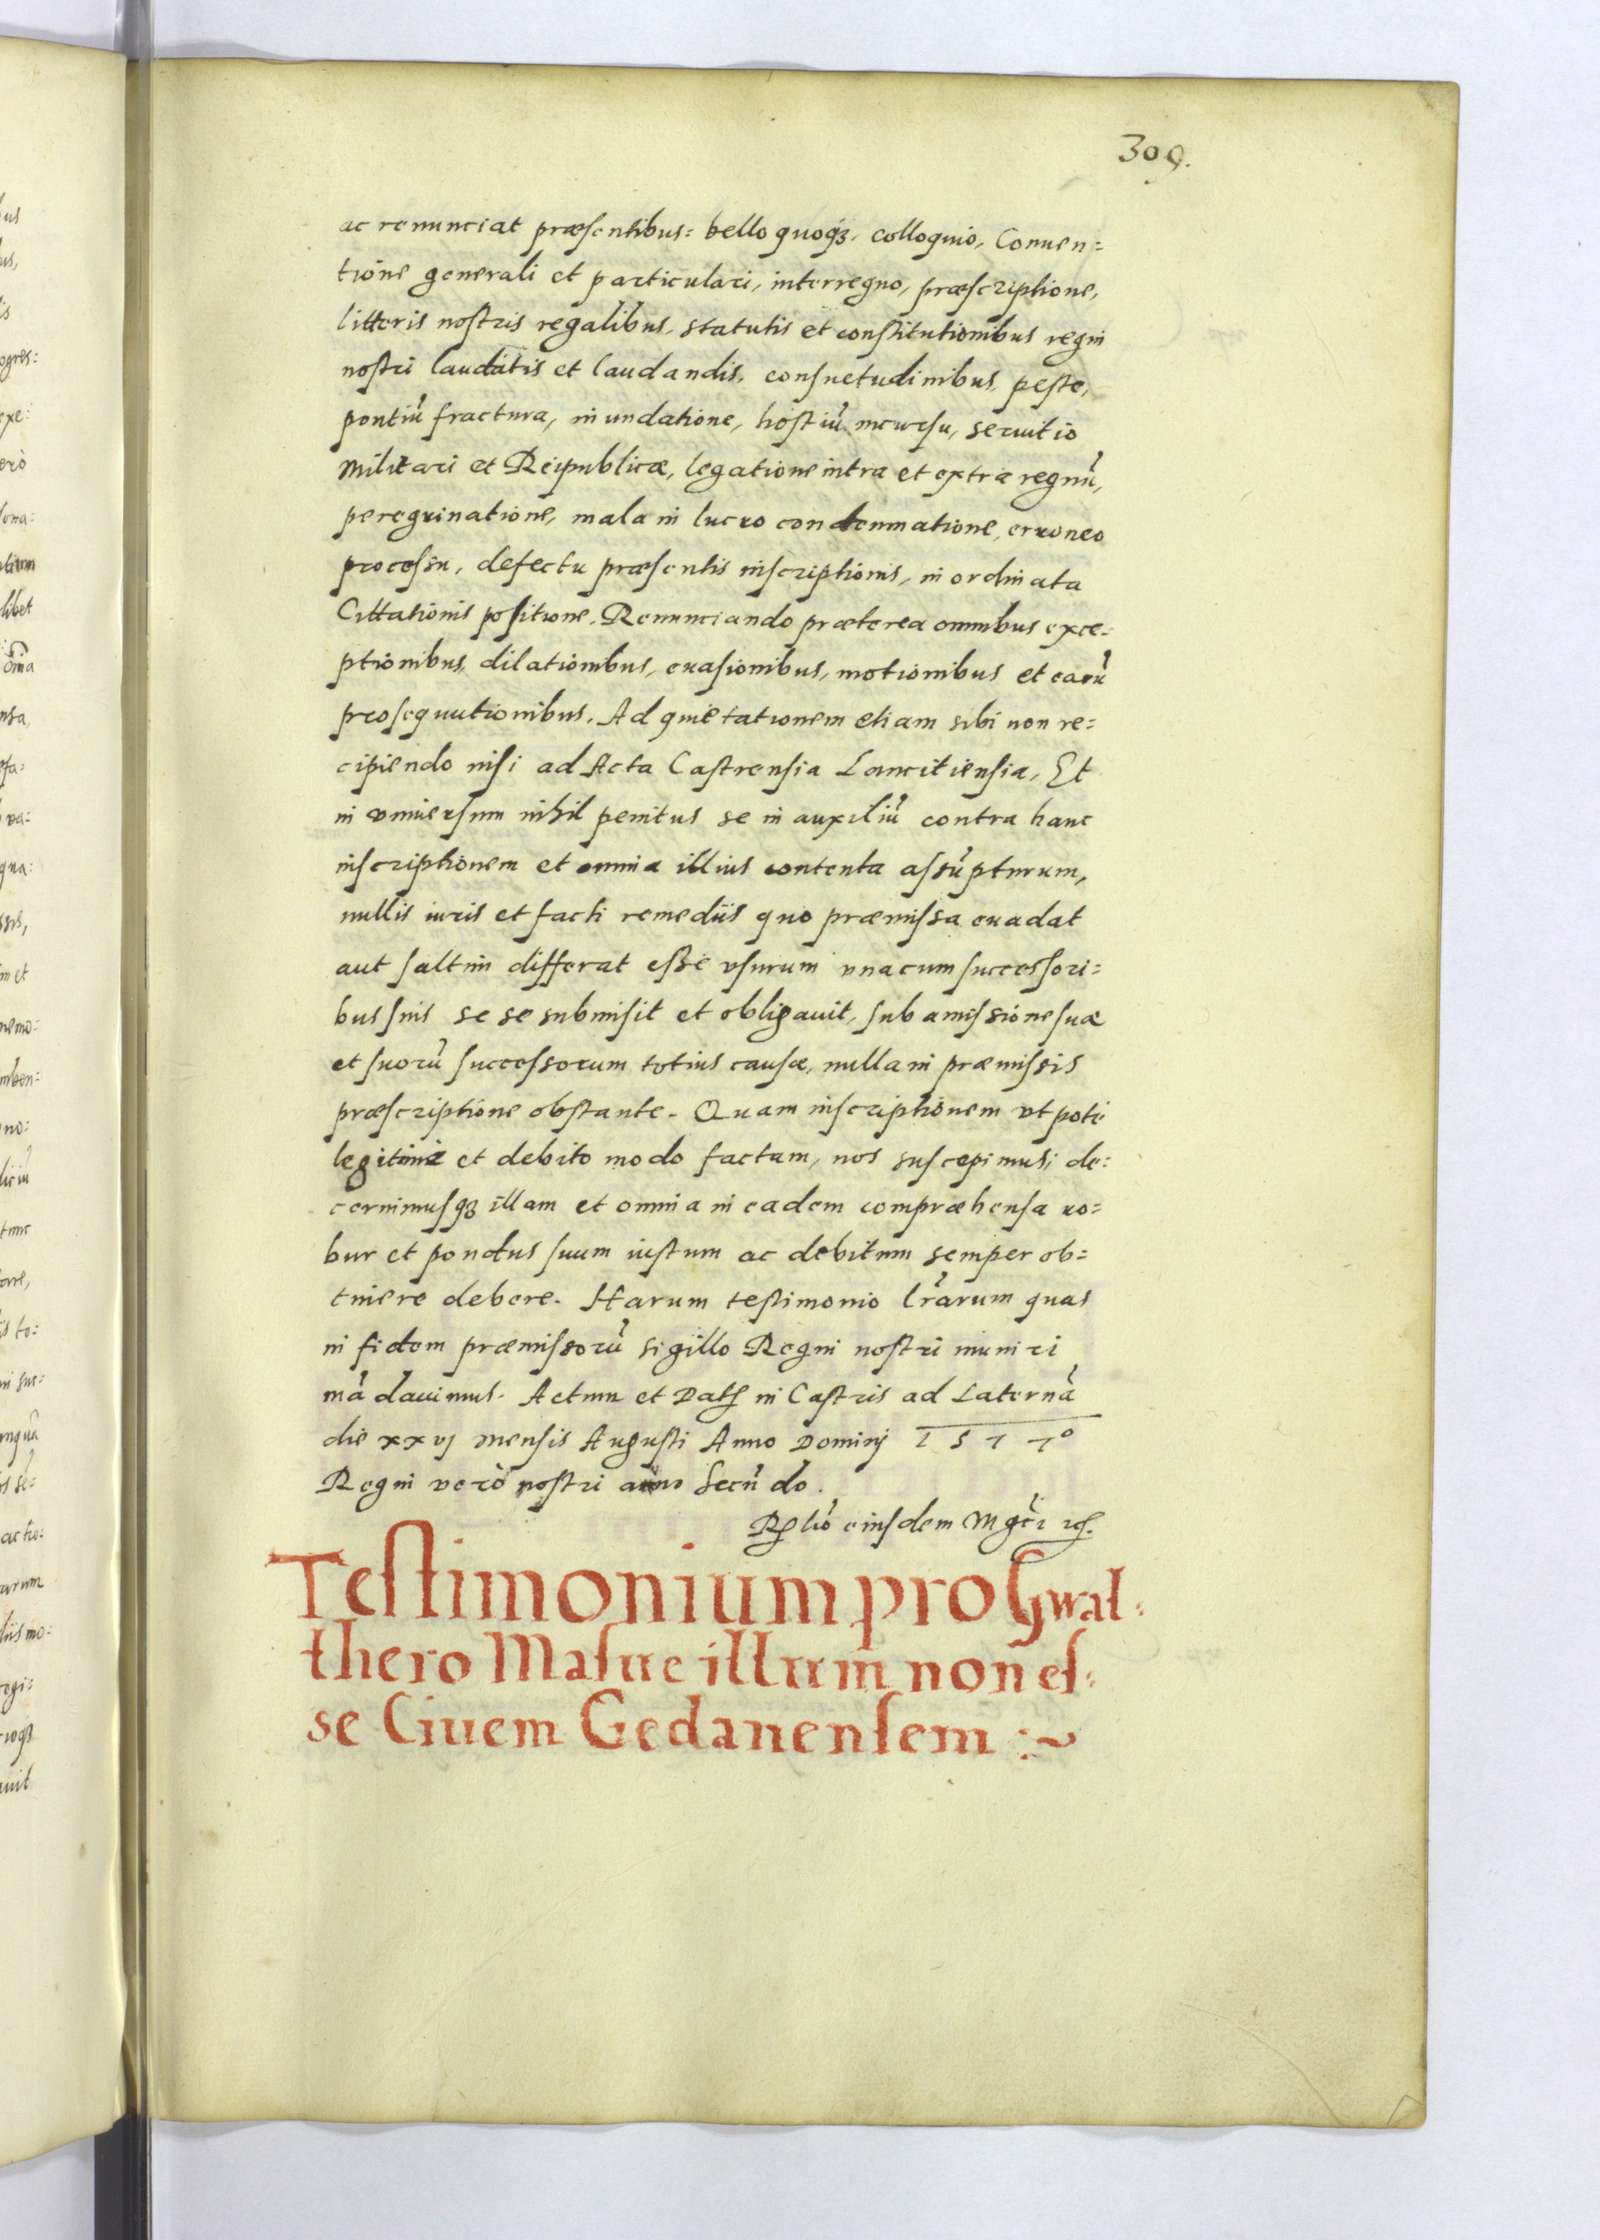 309.
ac renunciat præsentibus: bello quoqȝ, colloquio, Conuen=
tione generali et particulari, interregno, præscriptione,
litteris nostris regalibus, statutis et constitutionibus regni
nostri laudatis et laudandis, consuetudinibus, peste,
pontiũ fractura, inundatione, hostiũ incursu, seruitio
Militari et Reipublicæ, legatione intra et extra regnũ,
peregrinatione, mala in lucro condemnatione, erroneo
processu, defectu præsentis inscriptionis, inordinata
Cittationis positione. Renunciando præterea omnibus exce=
ptionibus, dilationibus, euasionibus, motionibus et earũ
prosequutionibus. Ad quietationem etiam sibi non re=
cipiendo nisi ad Acta Castrensia Lancitiensia, Et
in vniuersum nihil penitus se in auxiliũ contra hanc
inscriptionem et omnia illius contenta assũpturum,
nullis iuris et facti remediis quo præmissa euadat
aut saltim differat esse vsurum vnacum successori=
bus suis se se submisit et obligauit, sub amissione suæ
et suorũ successorum totius causæ, nulla in præmissis
præscriptione obstante. Quam inscriptionem vt poté
legitimè et debito modo factam, nos suscepimus, de=
cernimusqȝ illam et omnia in eadem compræhensa ro=
bur et pondus suum iustum ac debitum semper ob=
tinere debere. Harum testimonio lr̃arum quas
in fidem præmissorũ sigillo Regni nostri muniri
mãdauimus. Actum et Dat in Castris ad Laternã
die xxvj mensis Augusti Anno Dominj 1577°
Regni verò nostri anno Secũdo.
Rlio eiusdem Mgci
Testimonium pro Gwal=
thero Masue illum non es=
se Ciuem Gedanensem :~